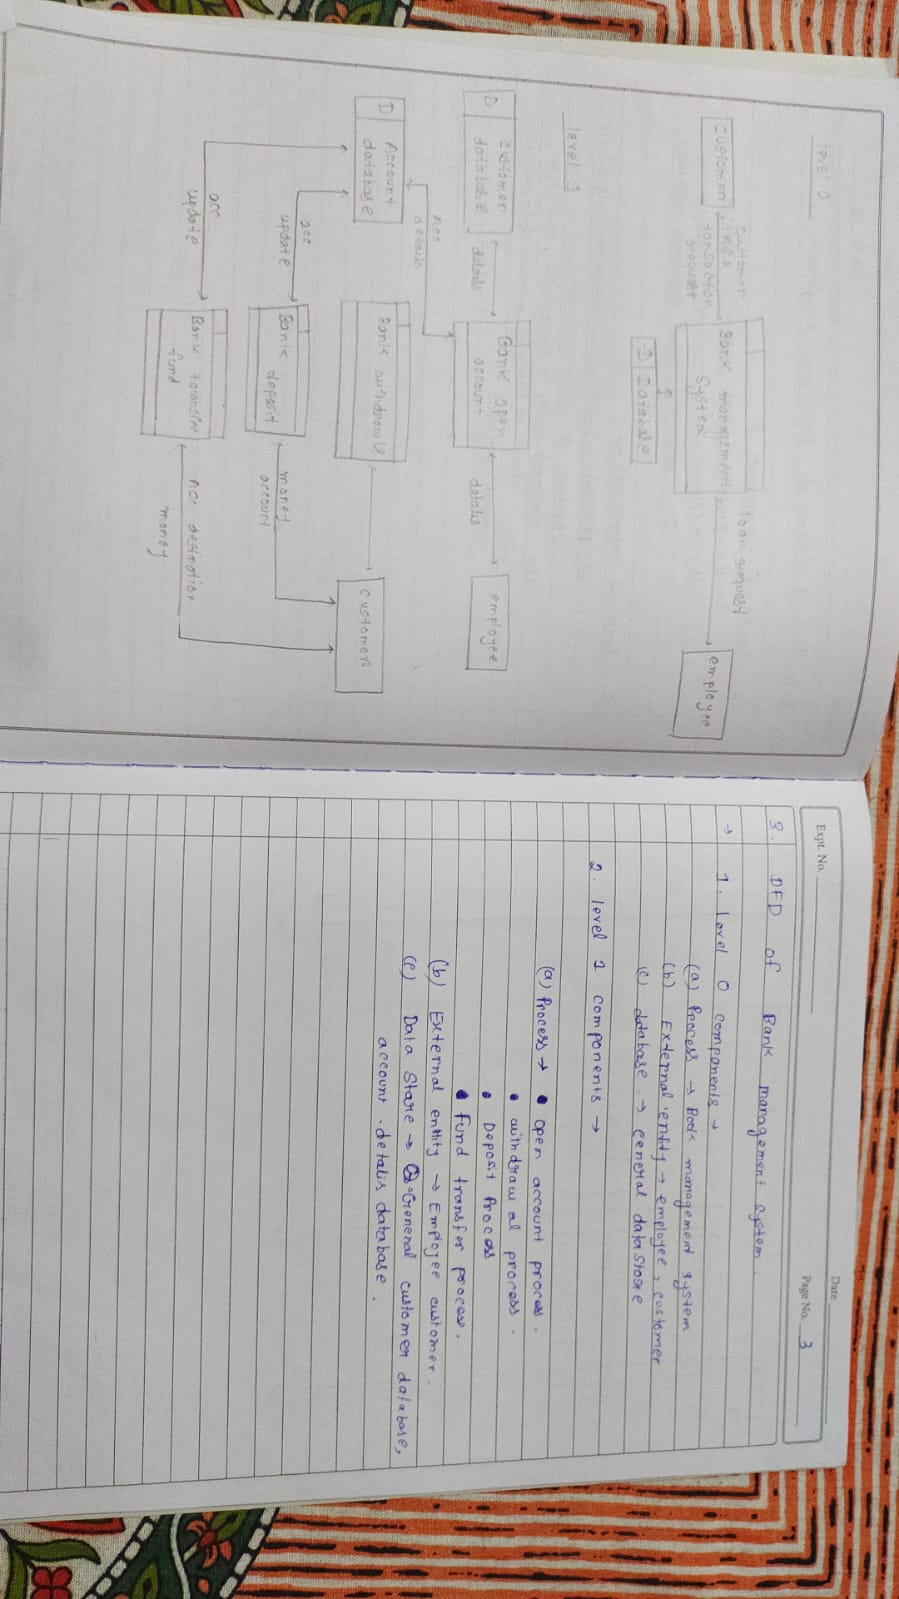 level 0
customer
customer
info
transaction
request
Bank management
system
loan request
employee
D Database
level 1
D customer
database
details
Bank open
account
details
employee
Acc
details
D Account
database
Bank withdrawl
customer
acc
update
Bank
deposit
money
account
acc
update
Bank transfer
fund
Acc destination
money
Expt. No.
Date
Page No. 3
3. DFD of Bank management system.
→ 1. level 0 components →
(a) Process → Book management system
(b) External entity → employee, customer
(c) database → General data store
2. level 1 components →
(a) Process → • open account process.
• withdraw al process.
• Deposit Process
• Fund transfer process.
(b) External entity → Employee customer.
(c) Data Store → General customer database,
account detalis database.